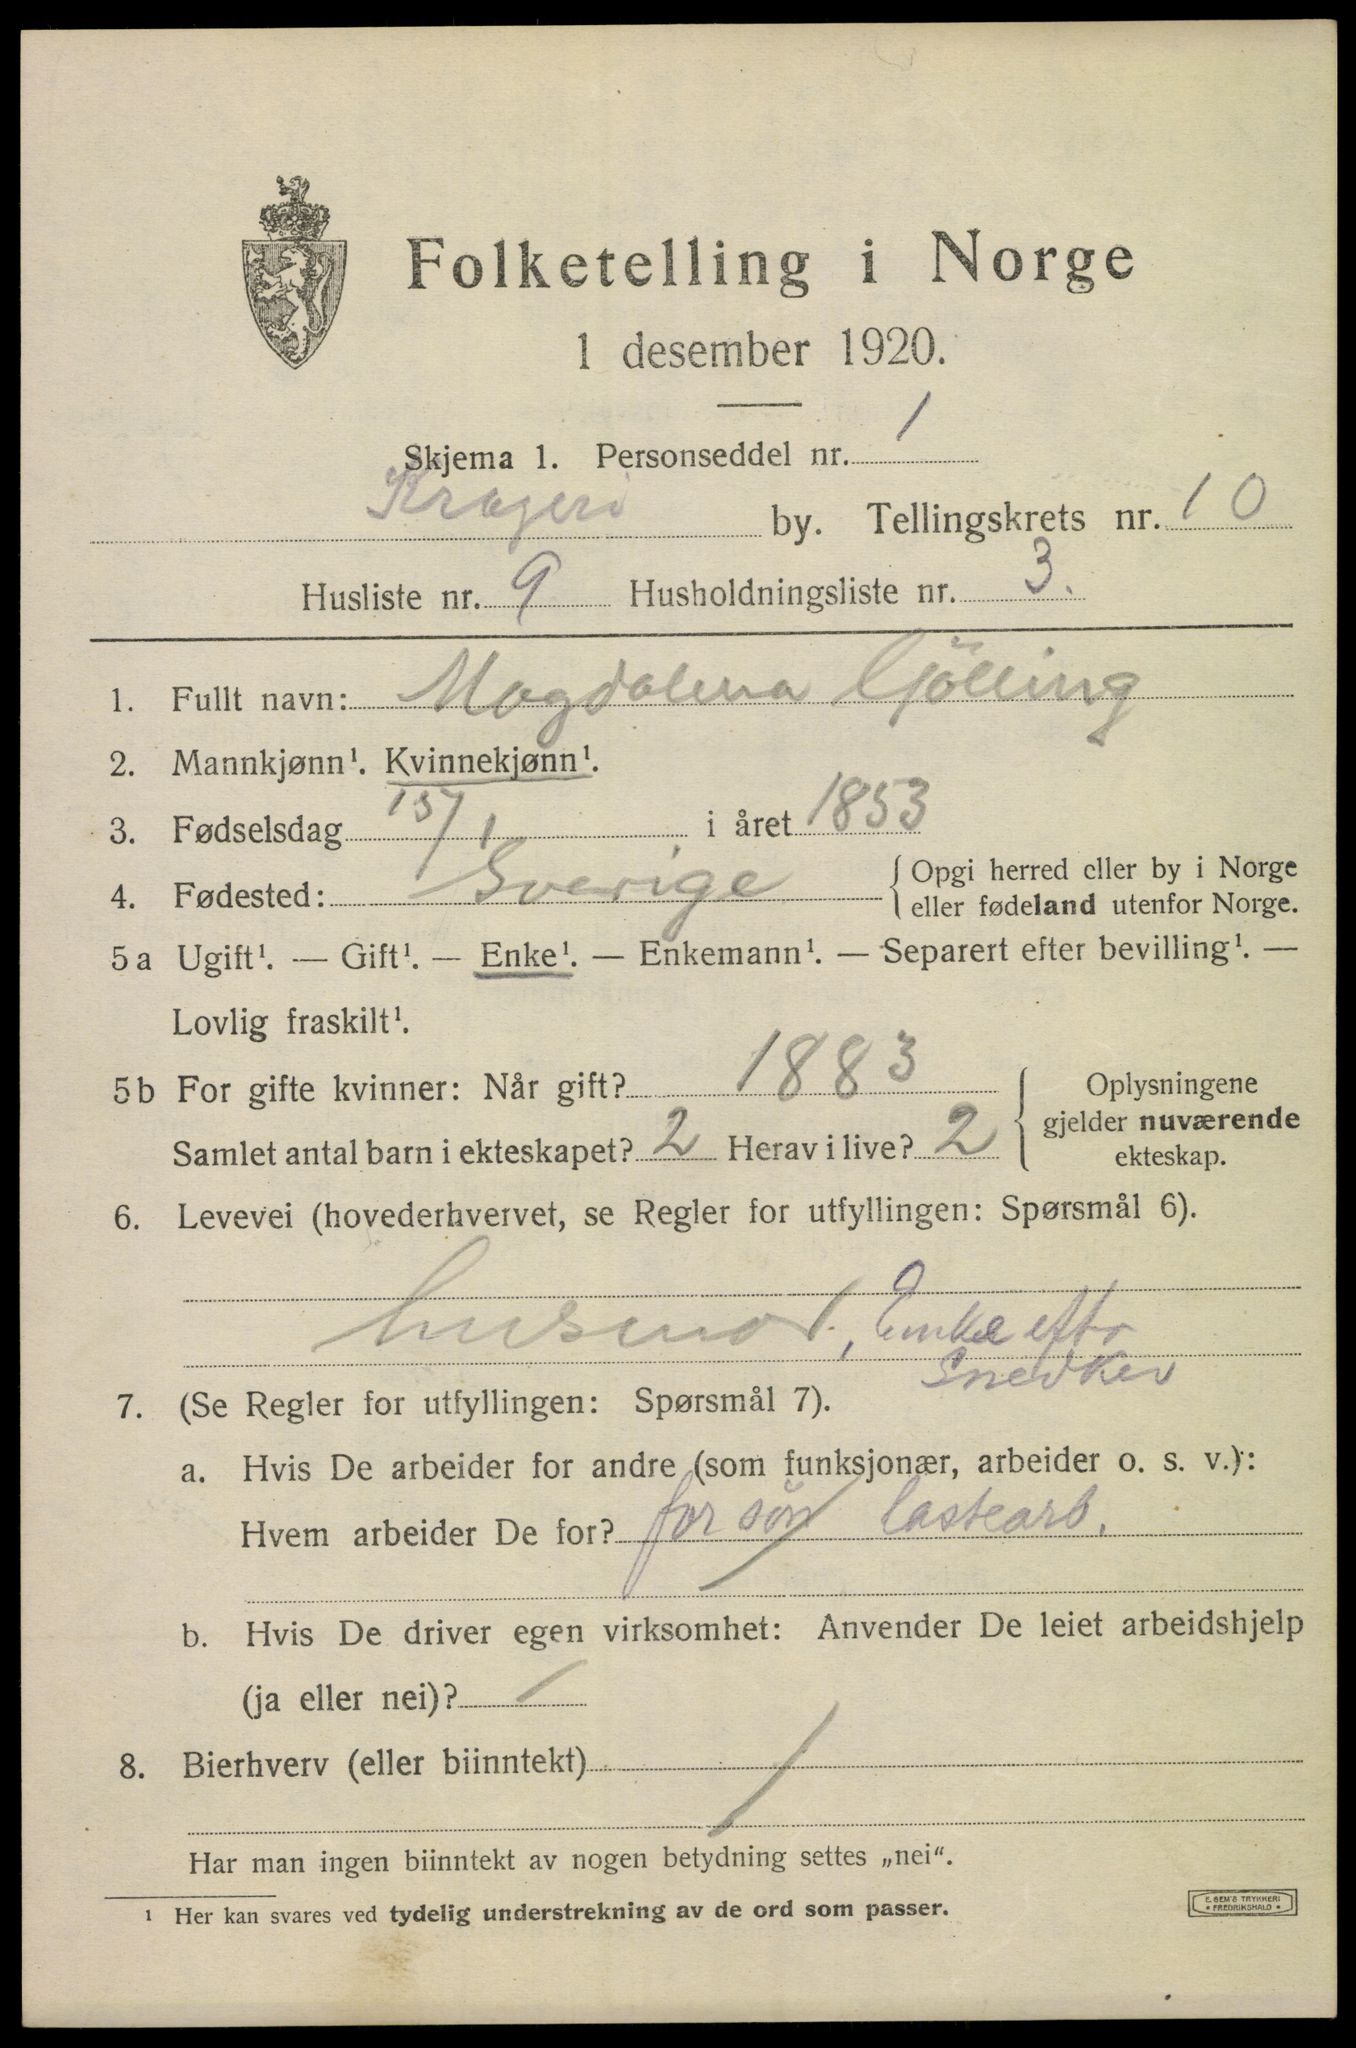 Folketelling i Norge
1 desember 1920.
Skjema 1. Personseddel nr. 1
Kragerö by. Tellingskrets nr. 10
Husliste nr. 9 Husholdningsliste nr. 3.
1. Fullt navn: Magdalena Gjölling
2. Mannkjønn¹. Kvinnekjønn¹.
3. Fødselsdag 15/1 i året 1853
4. Fødested: Sverige { Opgi herred eller by i Norge
eller fødeland utenfor Norge.
5a Ugift¹. — Gift¹. — Enke¹. — Enkemann¹. — Separert efter bevilling¹. —
Lovlig fraskilt¹.
5b For gifte kvinner: Når gift? 1883
Samlet antal barn i ekteskapet? 2 Herav i live? 2
{ Oplysningene
gjelder nuværende
ekteskap.
6. Levevei (hovederhvervet, se Regler for utfyllingen: Spørsmål 6).
husmor, Enke eftr
Snedker
7. (Se Regler for utfyllingen: Spørsmål 7).
a. Hvis De arbeider for andre (som funksjonær, arbeider o. s. v.):
Hvem arbeider De for? for sön lastearb.
b. Hvis De driver egen virksomhet: Anvender De leiet arbeidshjelp
(ja eller nei)? /
8. Bierhverv (eller biinntekt) /
Har man ingen biinntekt av nogen betydning settes „nei“.
¹ Her kan svares ved tydelig understrekning av de ord som passer.
E. SEM'S TRYKKERI
• FREDRIKSHALD •